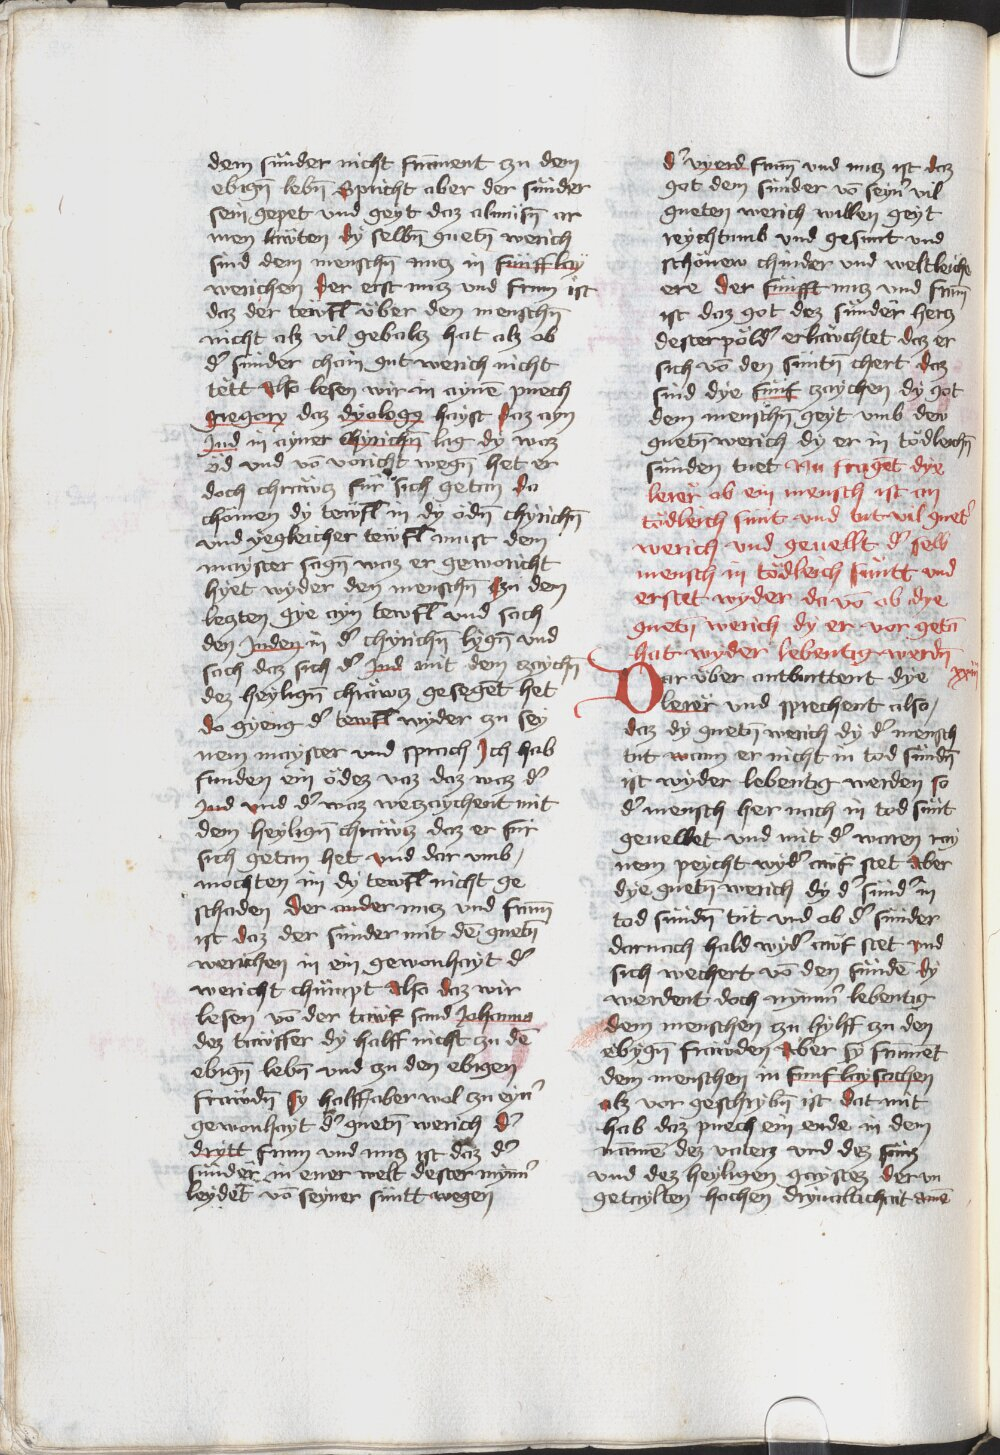 dem sünder nicht frument czu dem
ebign̄ lebn̄ Spricht aber der sünder
sein gepet vnd geyt daz almüsn̄ ar
men läwten dÿ selbn̄ guetn̄ werich
sind dem menschn̄ nucz in fünfflay
werichen Der erst nucz vnd frum ist
daz der tewfl über den menschn̄
nicht alz vil gebalcz hat alz ob
d' sünder chain gut werich nicht
tëtt Also lesen wir in aynē puech
Gregory daz dyalogg hayst Daz ayn
Jud in ayner chyrichn̄ lag dÿ waz
öd vnd vō voricht wegn̄ het er
doch chräwcz für sich getan Do
chömen dÿ tewfl in dÿ ödn̄ chyrichn̄
vnd yegleicher tewfl must dem
mayster sagn̄ waz er geworicht
hyet wyder den menschn̄ Czu dem
leczten gye ayn tewfl vnd sach
den Juden in d' chyrichn̄ lygn̄ vnd
sach daz sich d' Jud mit dem czaychn̄
dez heylign̄ chräwcz gesegēt het
do gyeng d' tewfl wyder czu sey
nem mayster vnd sprach Ich hab
funden ein ödez vaz daz waz d'
Jud vnd d' waz weczaychent mit
dem heylign̄ chräwcz daz er für
sich getan het vnd dar vmb
mochten im dÿ tewfl nicht ge
schaden Der ander nucz vnd frūm
ist daz der sünder mit dē guetn̄
werichen in ein gewonhayt d'
wericht chümpt Also daz wir
lesen vō der tawf sand Johanns
dez tawffer dÿ halff nicht czu dē
ebign̄ lebn̄ vnd czu den ebigen
fräwdn̄ sy halff aber wol czu eyn'
gewonhayt d' guetn̄ werich d'
drytt frum vnd nucz ist daz d'
sünder in ener welt dester mynn'
leydet vō seyner süntt wegen
d' vyerd frūm vnd nucz ist daz
got dem sünder vō seyn' vil
gueten werich willen geyt
reychtumb vnd gesunt vnd
schönew chinder vnd weltleiche
ere der fünfft nucz vnd frūm
ist daz got dez sünder hercz
desterpöld' erläwchtet daz er
sich vō den süntn̄ chert Daz
sind dye fünf czaychen dÿ got
dem menschn̄ geyt vmb dew
guetn̄ werich dÿ er in tödleichn̄
sünden tuet Nu fragēt dye
lerer ob ein mensch ist an
tödleich sünt vnd tut vil guet'
werich vnd geuellt d' selb
mensch in tödleich süntt vnd
erstet wyder da vō ob dye
guetn̄ werich dÿ er vor getā
hat wyder lebentig werdn̄
Dar über antburttent dye xxiij
lerer vnd sprechent also
daz dÿ guetn̄ werich dÿ d' mensch
tut wann er nicht in tod sündn̄
ist wyder lebentig werden so
d' mensch her nach in tod sünt
geuellet vnd mit d' waren ray
nem peycht wyd' awf stet Aber
dye guetn̄ werich dÿ d' sünd' in
tod sündn̄ tüt vnd ob d' sünder
darnach hald wyd' awf stet vnd
sich wechert vō den sündē dÿ
werdent doch nymm' lebentig
dem menschen czu hylff czu den
ebygn̄ fräwden Aber sy frūmet
dem menschen in fünflay sachen
alz vor geschrybn̄ ist Dat mit
hab daz puech ein ende in dem
namē dez vaterz vnd dez sunz
vnd dez heyligen gaystez der vn
getaylten hochen dryualtichait amē